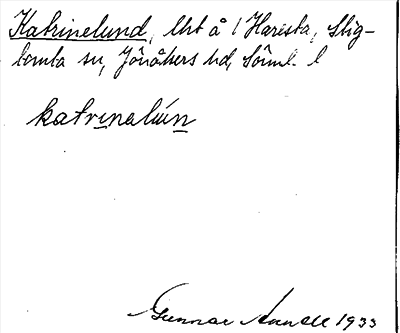 Katrinelund, lht å 1 Harista, Stig-
tomta sn, Jönåkers hd, Söml. l
katrinaliún
Gunnar 1933